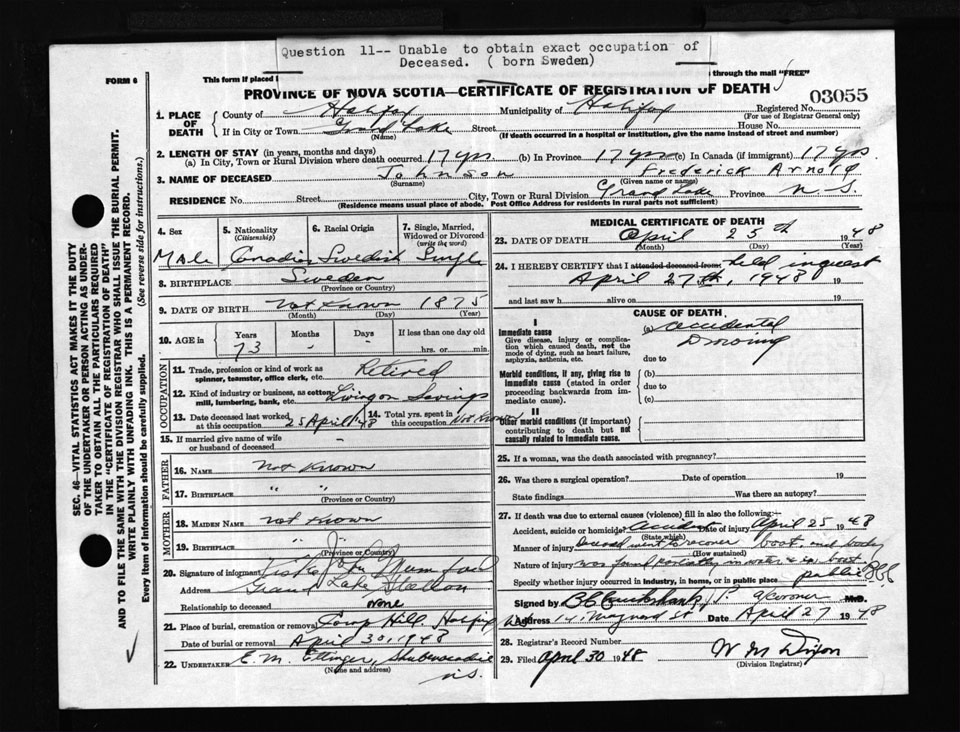 Question 11-- Unable to obtain exact occupation of
Deceased. ( born Sweden)
FORM 6
This form if placed i
through the mail "FREE"
PROVINCE OF NOVA SCOTIA—CERTIFICATE OF REGISTRATION OF DEATH
03055
1. PLACE OF DEATH
County of Halifax Municipality of Halifax Registered No.
(For use of Registrar General only)
If in City or Town Lake Street House No.
(Name) (If death occurred in a hospital or institution, give the name instead of street and number)
2. LENGTH OF STAY (in years, months and days)
(a) In City, Town or Rural Division where death occurred 17 yrs. (b) In Province 17 yrs (c) In Canada (if immigrant) 17 yrs.
3. NAME OF DECEASED Johnson Frederick Arnold
(Surname) (Given name or names)
RESIDENCE No. Street City, Town or Rural Division Grand Lake Province N S.
(Residence means usual place of abode. Post Office Address for residents in rural parts not sufficient)
4. Sex
Male
5. Nationality
(Citizenship)
Canadian
6. Racial Origin
Swedish
7. Single, Married,
Widowed or Divorced
(write the word)
Single
8. BIRTHPLACE Sweden
(Province or Country)
9. DATE OF BIRTH Not Known 1875
(Month) (Day) (Year)
10. AGE in
Years Months Days If less than one day old
73 - - hrs. or min.
OCCUPATION
11. Trade, profession or kind of work as
spinner, teamster, office clerk, etc. Retired
12. Kind of industry or business, as cotton
mill, lumbering, bank, etc. Living on Savings
13. Date deceased last worked
at this occupation 25 April 48
14. Total yrs. spent in
this occupation Not Known
15. If married give name of wife
or husband of deceased -
FATHER
16. NAME Not Known
17. BIRTHPLACE " "
(Province or Country)
MOTHER
18. MAIDEN NAME Not Known
19. BIRTHPLACE "
(Province or Country)
20. Signature of informant John Mumford
Address Grand Lake Station
Relationship to deceased None
21. Place of burial, cremation or removal Camp Hill, Halifax
Date of burial or removal April 30, 1948
22. UNDERTAKER E. M. Ettinger, Shubenacadie
(Name and address) N.S.
MEDICAL CERTIFICATE OF DEATH
23. DATE OF DEATH April 25th 1948
(Month) (Day) (Year)
24. I HEREBY CERTIFY that I attended deceased from: held inquest
April 27th, 1948 19
and last saw h alive on 19
CAUSE OF DEATH
I
Immediate cause
Give disease, injury or complica-
tion which caused death, not the
mode of dying, such as heart failure,
asphyxia, asthenia, etc.
(a) accidental
Drowing
due to
Morbid conditions, if any, giving rise to
immediate cause (stated in order
proceeding backwards from im-
mediate cause).
(b)
due to
(c)
II
Other morbid conditions (if important)
contributing to death but not
causally related to immediate cause.
25. If a woman, was the death associated with pregnancy?
26. Was there a surgical operation? Date of operation 19
State findings Was there an autopsy?
27. If death was due to external causes (violence) fill in also the following:
Accident, suicide or homicide? Accident Date of injury April 25 1948
(State which)
Manner of injury Deceased went to recover boat, and body
(How sustained)
Nature of injury was found partially in water & in boat.
Specify whether injury occurred in industry, in home, or in public place public
Signed by Cruikshank J.P. a/Coroner M.D.
Address Date April 27 1948
28. Registrar's Record Number
29. Filed April 30 1948 W M Dixon
(Division Registrar)
SEC. 46—VITAL STATISTICS ACT MAKES IT THE DUTY
OF THE UNDERTAKER OR PERSON ACTING AS UNDER-
TAKER TO OBTAIN ALL THE PARTICULARS REQUIRED
IN THE "CERTIFICATE OF REGISTRATION OF DEATH"
AND TO FILE THE SAME WITH THE DIVISION REGISTRAR WHO SHALL ISSUE THE BURIAL PERMIT.
WRITE PLAINLY WITH UNFADING INK. THIS IS A PERMANENT RECORD.
Every item of Information should be carefully supplied. (See reverse side for instructions.)